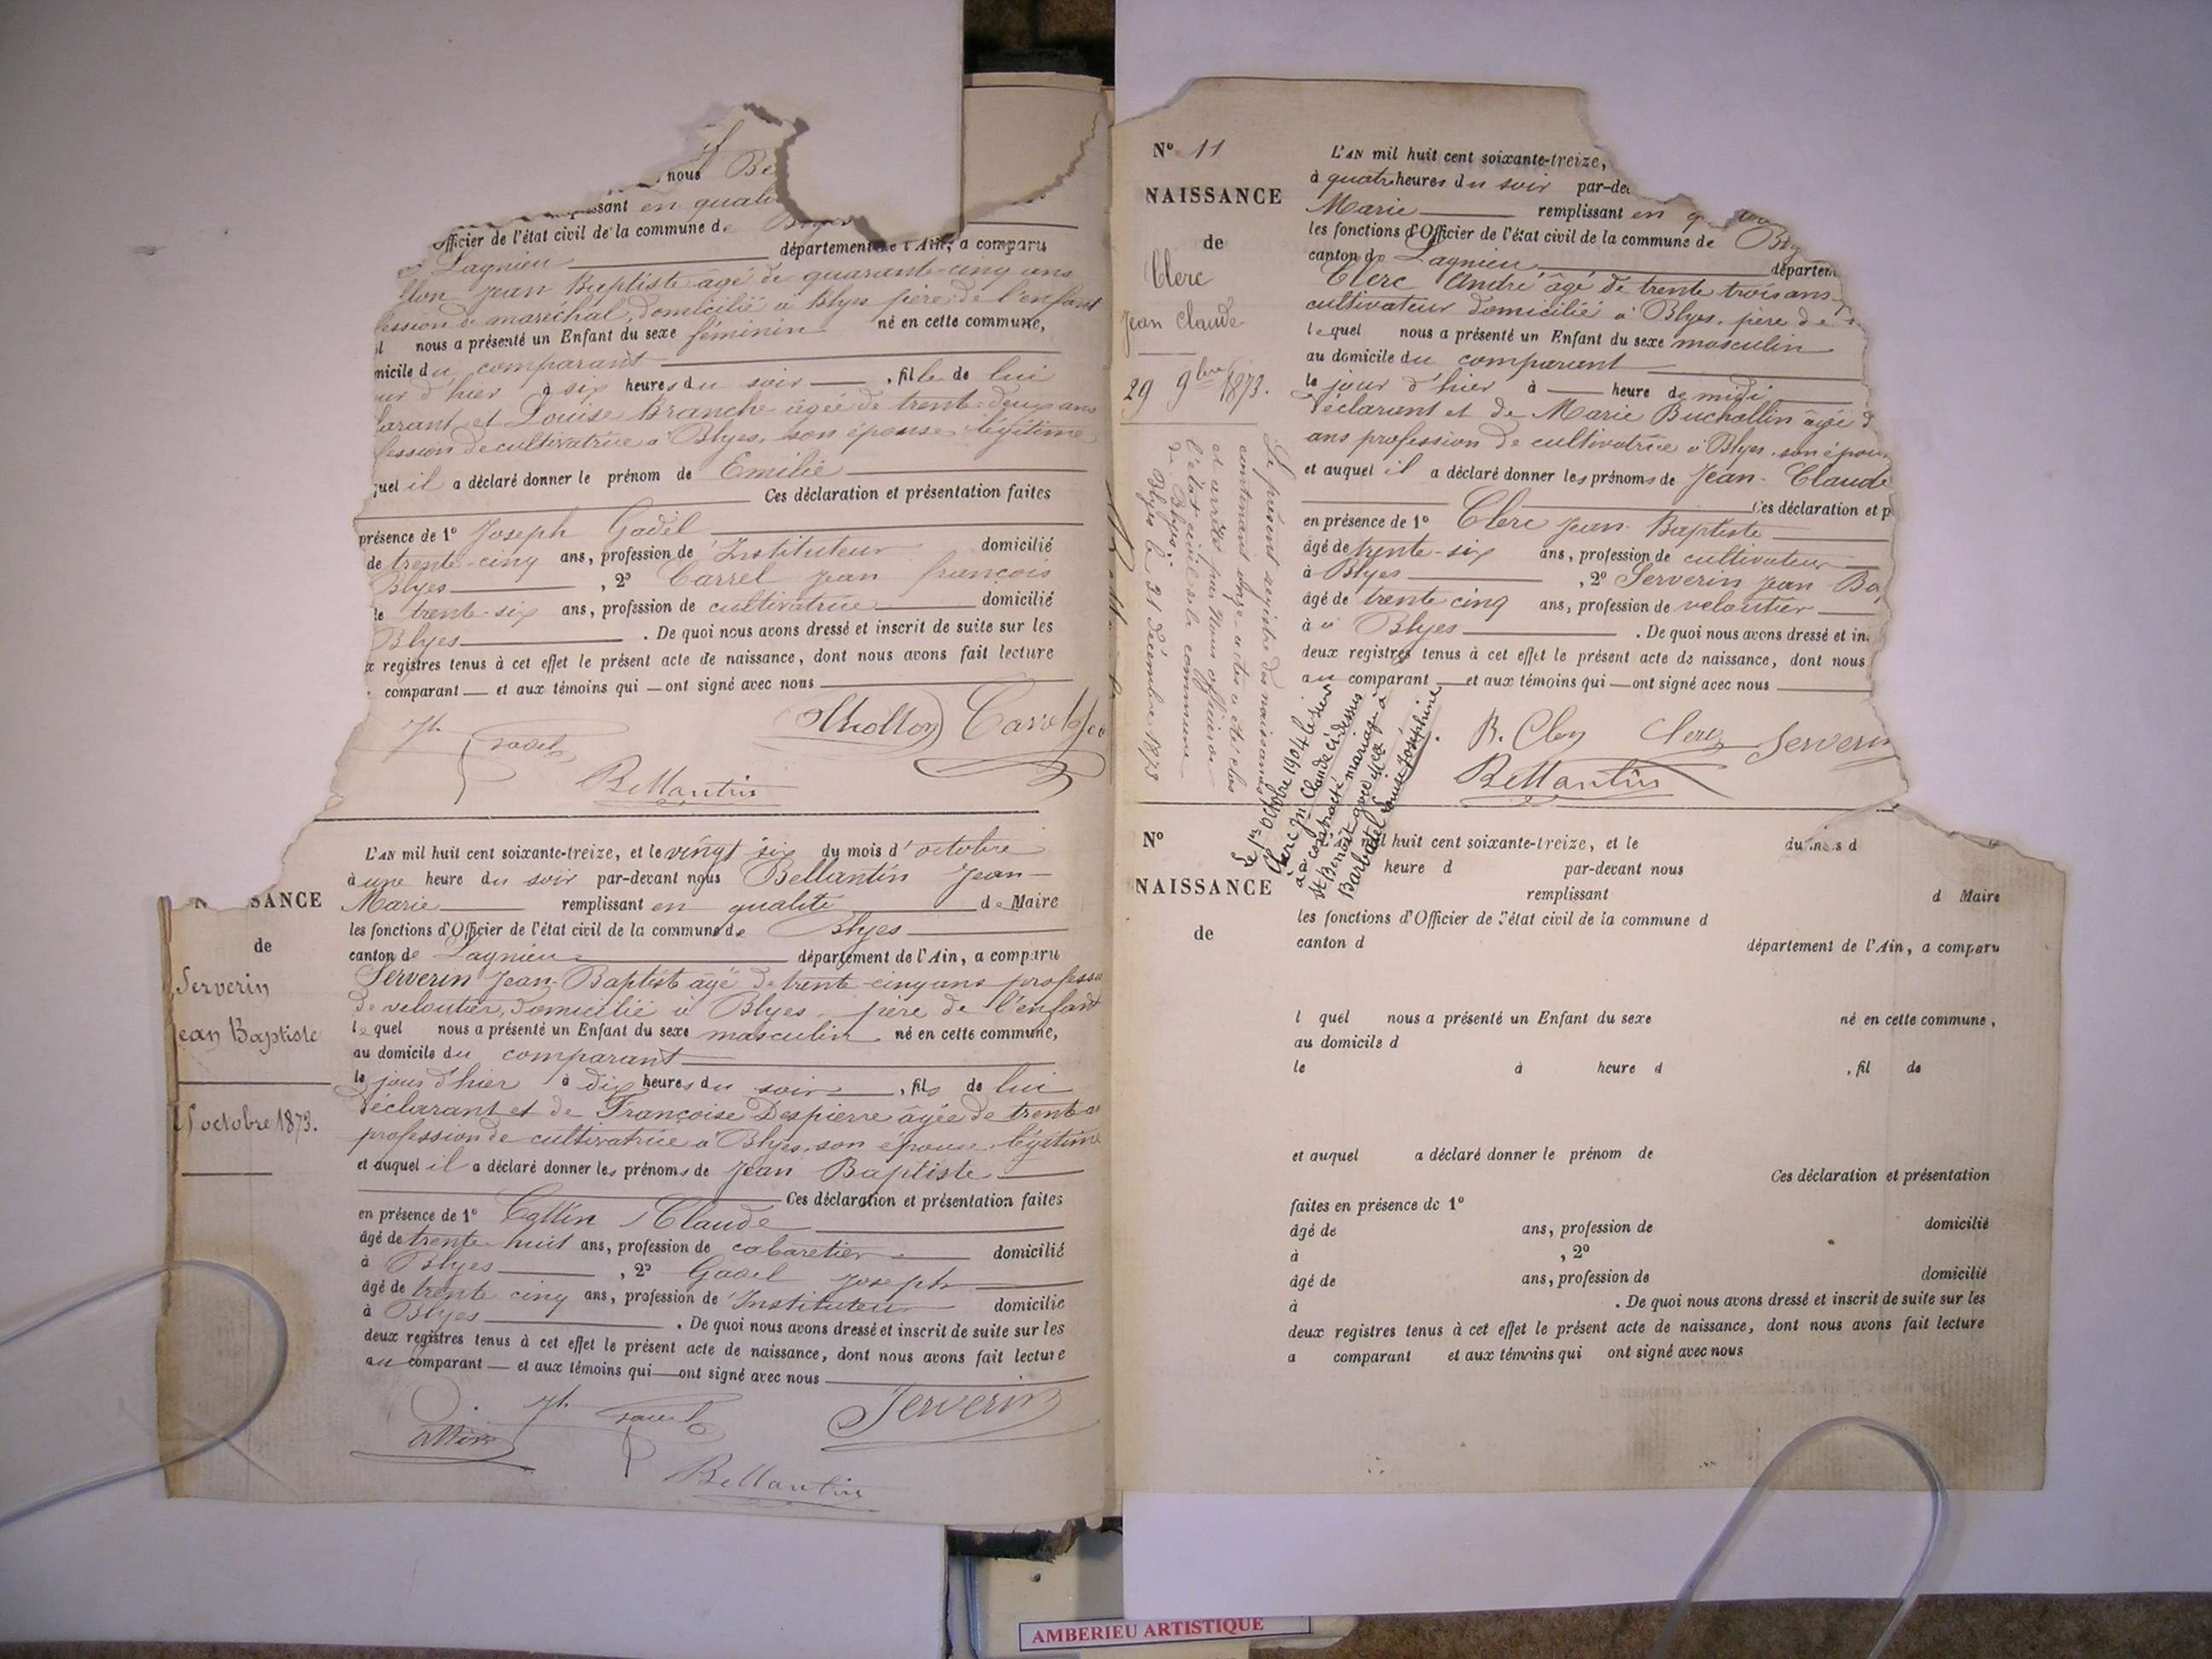 nous Be
en quali
Officier de l'état civil de la commune de Blyes
Lagnieu département de l'Ain, a comparu
llon Jean Baptiste âgé de quarante-cinq ans
ession de maréchal, domicilié à Blyes père de l'enfant
l nous a présenté un Enfant du sexe féminin né en cette commune,
micile du comparant
ur d'hier à six heures du soir , fille de lui
larant et Louise Branche âgée de trente-deux ans
fession de cultivatrice à Blyes, son épouse légitime
quel il a déclaré donner le prénom de Emilie
Ces déclaration et présentation faites
présence de 1° Joseph Gadel
de trente-cinq ans, profession de Instituteur domicilié
Blyes , 2° Carrel Jean françois
de trente-six ans, profession de cultivatrice domicilié
Blyes . De quoi nous avons dressé et inscrit de suite sur les
x registres tenus à cet effet le présent acte de naissance, dont nous avons fait lecture
comparant et aux témoins qui ont signé avec nous
Jh Gadel Chollon Carrel
Bellantin
L'AN mil huit cent soixante-treize, et le vingt six du mois d'octobre
à une heure du soir par-devant nous Bellantin Jean
SANCE
Marie remplissant en qualité de Maire
les fonctions d'Officier de l'état civil de la commune de Blyes
de
canton de Lagnieu département de l'Ain, a comparu
Serverin
Jean Baptiste
octobre 1873.
Serverin Jean-Baptiste âgé de trente-cinq ans profession
de veloutier, domicilié à Blyes père de l'enfant
lequel nous a présenté un Enfant du sexe masculin né en cette commune,
au domicile du comparant
le jour d'hier à dix heures du soir , fils de lui
déclarant et de Françoise Despierre âgée de trente
profession de cultivatrice à Blyes, son épouse légitime
et auquel il a déclaré donner les prénoms de Jean Baptiste
Ces déclaration et présentation faites
en présence de 1° Cattin Claude
âgé de trente-huit ans, profession de cabaretier domicilié
à Blyes , 2° Gadel Joseph
âgé de trente cinq ans, profession de Instituteur domicilié
à Blyes . De quoi nous avons dressé et inscrit de suite sur les
deux registres tenus à cet effet le présent acte de naissance, dont nous avons fait lecture
au comparant et aux témoins qui ont signé avec nous
Cattin Jh Gadel Serverin
Bellantin
N° 11
NAISSANCE
de
Clerc
Jean Claude
29 9bre 1873.
L'AN mil huit cent soixante-treize,
à quatre heures du soir par-de
Marie remplissant en q
les fonctions d'Officier de l'état civil de la commune de Bly
canton de Lagnieu départem
Clerc André âgé de trente trois ans
cultivateur domicilié à Blyes, père de
lequel nous a présenté un Enfant du sexe masculin
au domicile du comparant
le jour d'hier à heure de midi
déclarant et de Marie Buchallin âgée d
ans profession de cultivatrice à Blyes son épou
et auquel il a déclaré donner les prénoms de Jean-Claude
Ces déclaration et p
en présence de 1° Clerc Jean-Baptiste
âgé de trente-six ans, profession de cultivateur
à Blyes , 2° Serverin Jean Ba
âgé de trente cinq ans, profession de veloutier
à Blyes . De quoi nous avons dressé et in
deux registres tenus à cet effet le présent acte de naissance, dont nous
au comparant et aux témoins qui ont signé avec nous
Clerc Serverin
Bellantin
Le présent registre des naissances
contenant onze actes a été clos
et arrêté par Nous officier de
l'état civil de la commune
de Blyes.
Blyes le 31 décembre 1873
Le 1er Octobre 1904 le sieur
Clerc Jn Claude ci-dessus
a contracté mariage à
St Benoît avec Mlle
Barbatel Louise Joséphine.
N°
NAISSANCE
de
mil huit cent soixante-treize, et le du mois d
heure d par-devant nous
remplissant d Maire
les fonctions d'Officier de l'état civil de la commune d
canton d département de l'Ain, a comparu
l quel nous a présenté un Enfant du sexe né en cette commune,
au domicile d
le à heure d , fil de
et auquel a déclaré donner le prénom de
Ces déclaration et présentation
faites en présence de 1°
âgé de ans, profession de domicilié
à , 2°
âgé de ans, profession de domicilié
à . De quoi nous avons dressé et inscrit de suite sur les
deux registres tenus à cet effet le présent acte de naissance, dont nous avons fait lecture
a comparant et aux témoins qui ont signé avec nous
AMBERIEU ARTISTIQUE